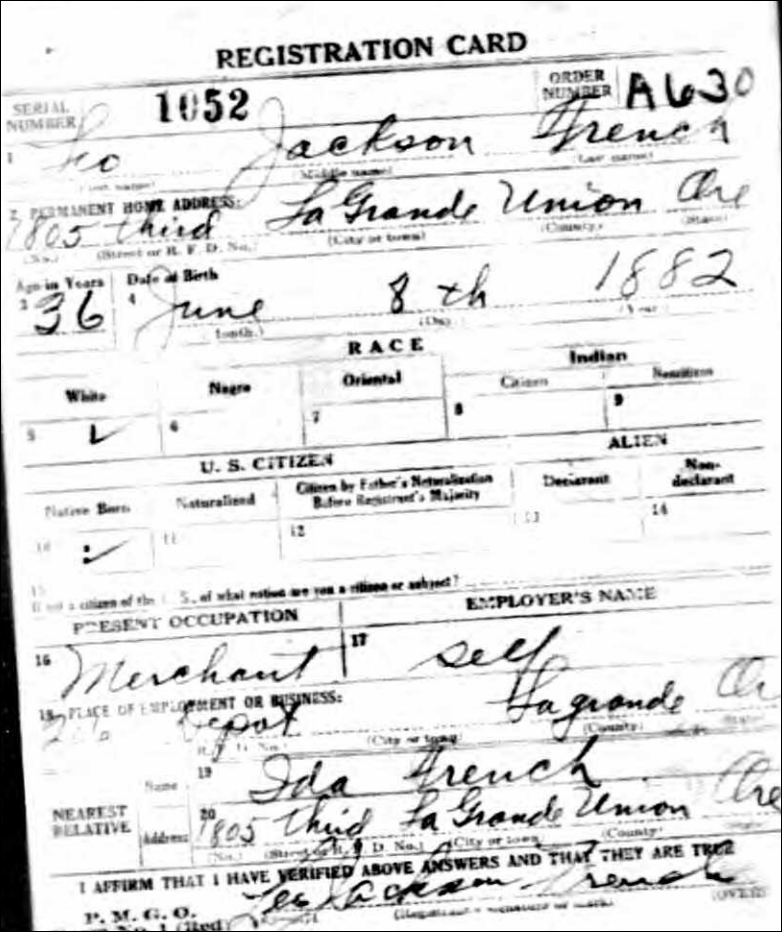 REGISTRATION CARD
SERIAL NUMBER 1052 ORDER NUMBER A630
1 Leo Jackson French
(First name) (Middle name) (Last name)
2 PERMANENT HOME ADDRESS:
1805 third La Grande Union Ore
(No.) (Street or R. F. D. No.) (City or town) (County) (State)
Age in Years Date of Birth
3 36 4 June 8th 1882
(Month.) (Day) (Year)
RACE
White Negro Oriental Indian
Citizen
5 ✓ 6 7 8 9
U. S. CITIZEN ALIEN
Native Born Naturalized Citizen by Father's Naturalization Before Registrant's Majority Declarant Non-declarant
10 ✓ 11 12 13 14
15
If not a citizen of the U. S., of what nation are you a citizen or subject?
PRESENT OCCUPATION EMPLOYER'S NAME
16 Merchant 17 self
18 PLACE OF EMPLOYMENT OR BUSINESS:
Depot Lagrande Or
(City or town) (County) (State)
NEAREST RELATIVE
Name 19 Ida French
Address 20 1805 third La Grande Union Ore
(No.) (Street or R. F. D. No.) (City or town) (County)
I AFFIRM THAT I HAVE VERIFIED ABOVE ANSWERS AND THAT THEY ARE TRUE
P. M. G. O. Leo Jackson French
No. 1 (Red) (Registrant's signature or mark) (OVER)